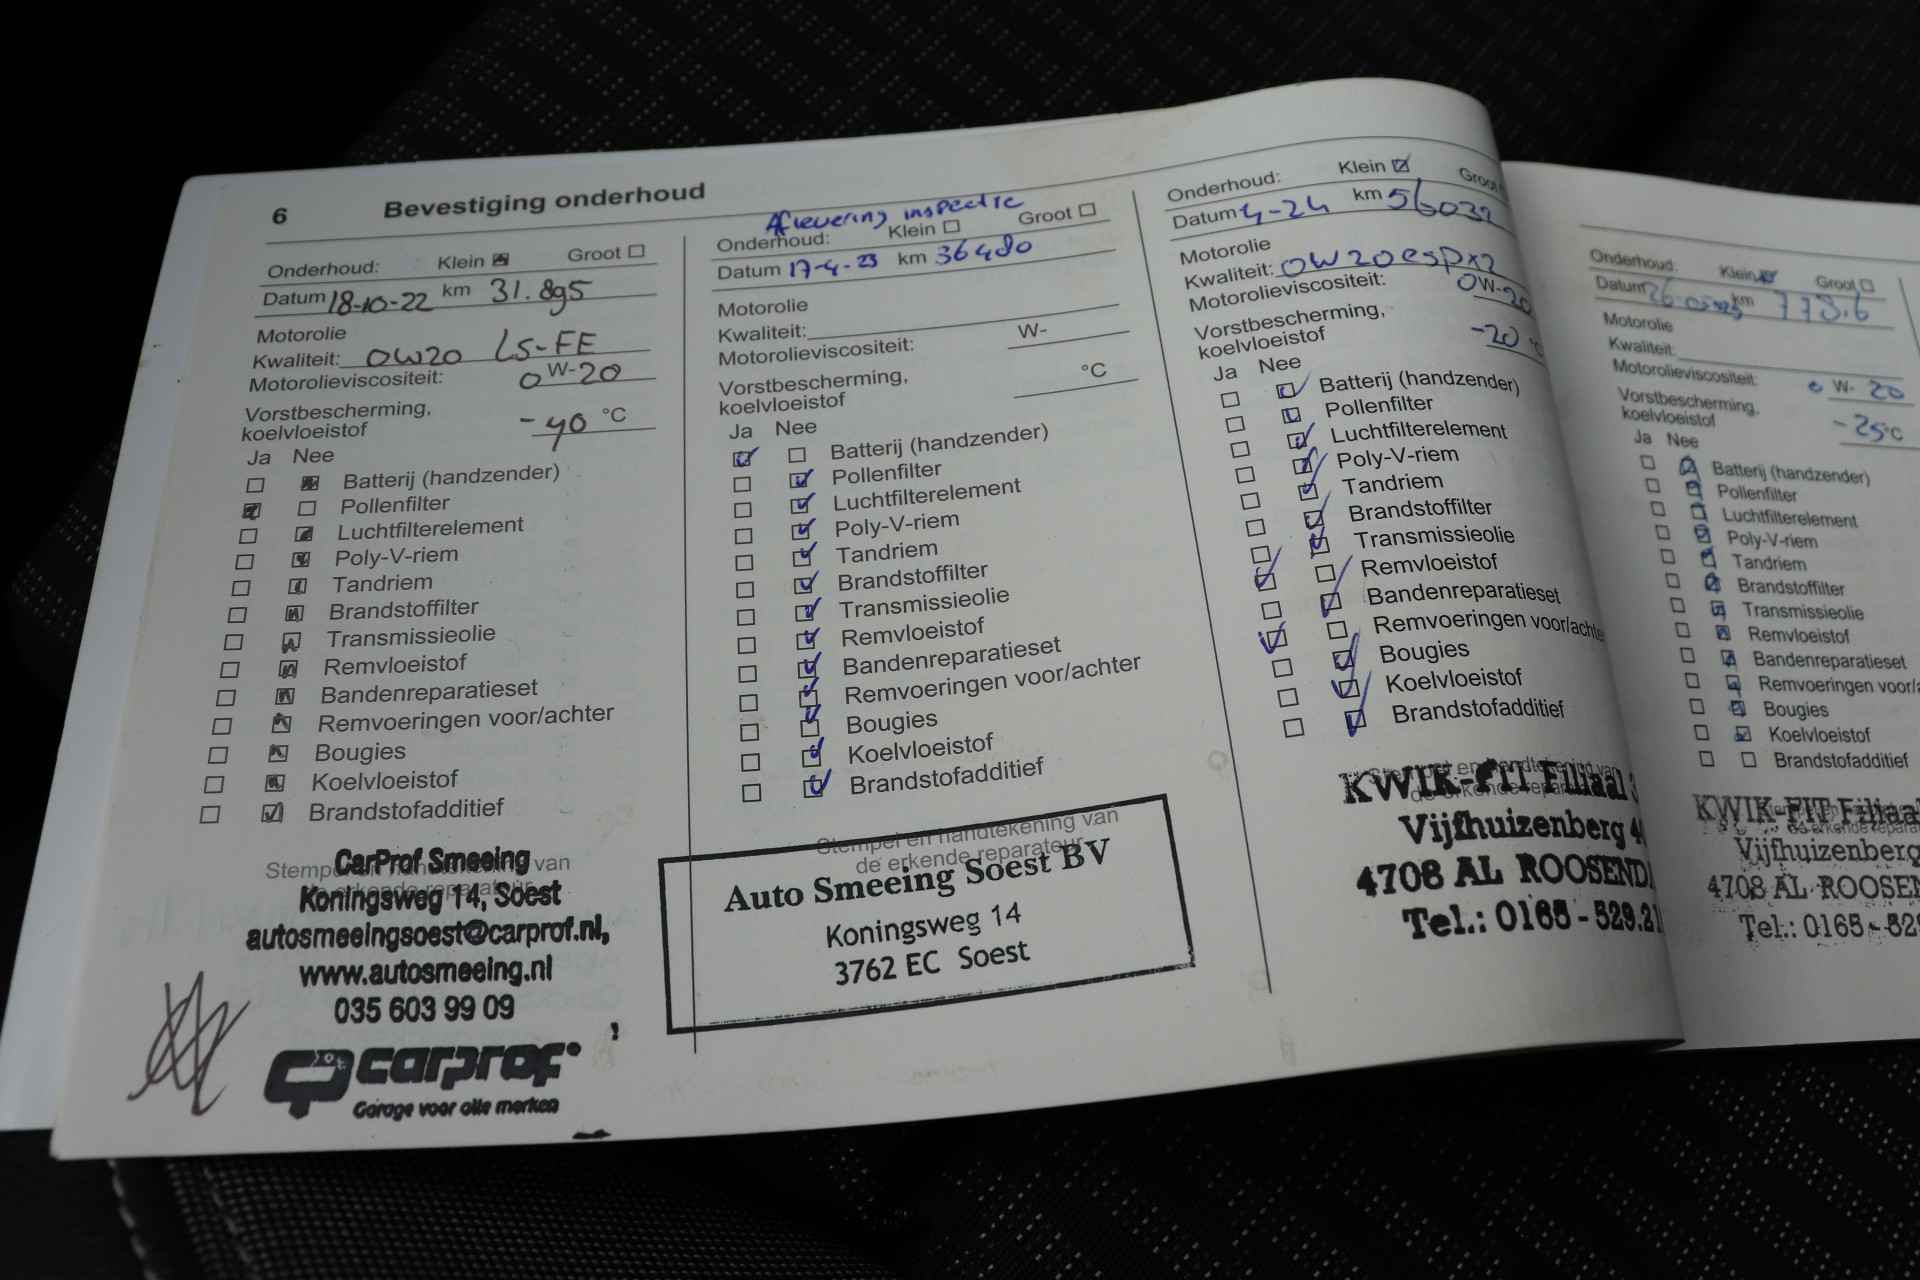 6 Bevestiging onderhoud
Onderhoud: Klein Groot
Datum 18-10-22 km 31.895
Motorolie
Kwaliteit: 0W20 LS-FE
Motorolieviscositeit: 0 W- 20
Vorstbescherming,
koelvloeistof -40 °C
Ja Nee
Batterij (handzender)
Pollenfilter
Luchtfilterelement
Poly-V-riem
Tandriem
Brandstoffilter
Transmissieolie
Remvloeistof
Bandenreparatieset
Remvoeringen voor/achter
Bougies
Koelvloeistof
Brandstofadditief
CarProf Smeeing
Koningsweg 14, Soest
autosmeeingsoest@carprof.nl,
www.autosmeeing.nl
035 603 99 09
carprof
Garage voor alle merken
Aflevering inspectie
Onderhoud: Klein Groot
Datum 17-4-23 km 36480
Motorolie
Kwaliteit:
Motorolieviscositeit: W-
Vorstbescherming,
koelvloeistof °C
Ja Nee
Batterij (handzender)
Pollenfilter
Luchtfilterelement
Poly-V-riem
Tandriem
Brandstoffilter
Transmissieolie
Remvloeistof
Bandenreparatieset
Remvoeringen voor/achter
Bougies
Koelvloeistof
Brandstofadditief
Stempel en handtekening van
de erkende reparateur
Auto Smeeing Soest BV
Koningsweg 14
3762 EC Soest
Onderhoud: Klein Groot
Datum 4-24 km 56032
Motorolie
Kwaliteit: 0W20
Motorolieviscositeit: 0W-20
Vorstbescherming,
koelvloeistof -20 °C
Ja Nee
Batterij (handzender)
Pollenfilter
Luchtfilterelement
Poly-V-riem
Tandriem
Brandstoffilter
Transmissieolie
Remvloeistof
Bandenreparatieset
Remvoeringen voor/achte
Bougies
Koelvloeistof
Brandstofadditief
KWIK-FIT Filiaal
Vijfhuizenberg
4708 AL ROOSEND
Tel.: 0165 - 529.21
Onderhoud: Klein Groot
Datum km
Motorolie
Kwaliteit:
Motorolieviscositeit: 0 W- 20
Vorstbescherming,
koelvloeistof -25°C
Ja Nee
Batterij (handzender)
Pollenfilter
Luchtfilterelement
Poly-V-riem
Tandriem
Brandstoffilter
Transmissieolie
Remvloeistof
Bandenreparatieset
Remvoeringen voor/
Bougies
Koelvloeistof
Brandstofadditief
KWIK-FIT Filiaal
Vijfhuizenberg
4708 AL ROOSEN
Tel.: 0165 - 52